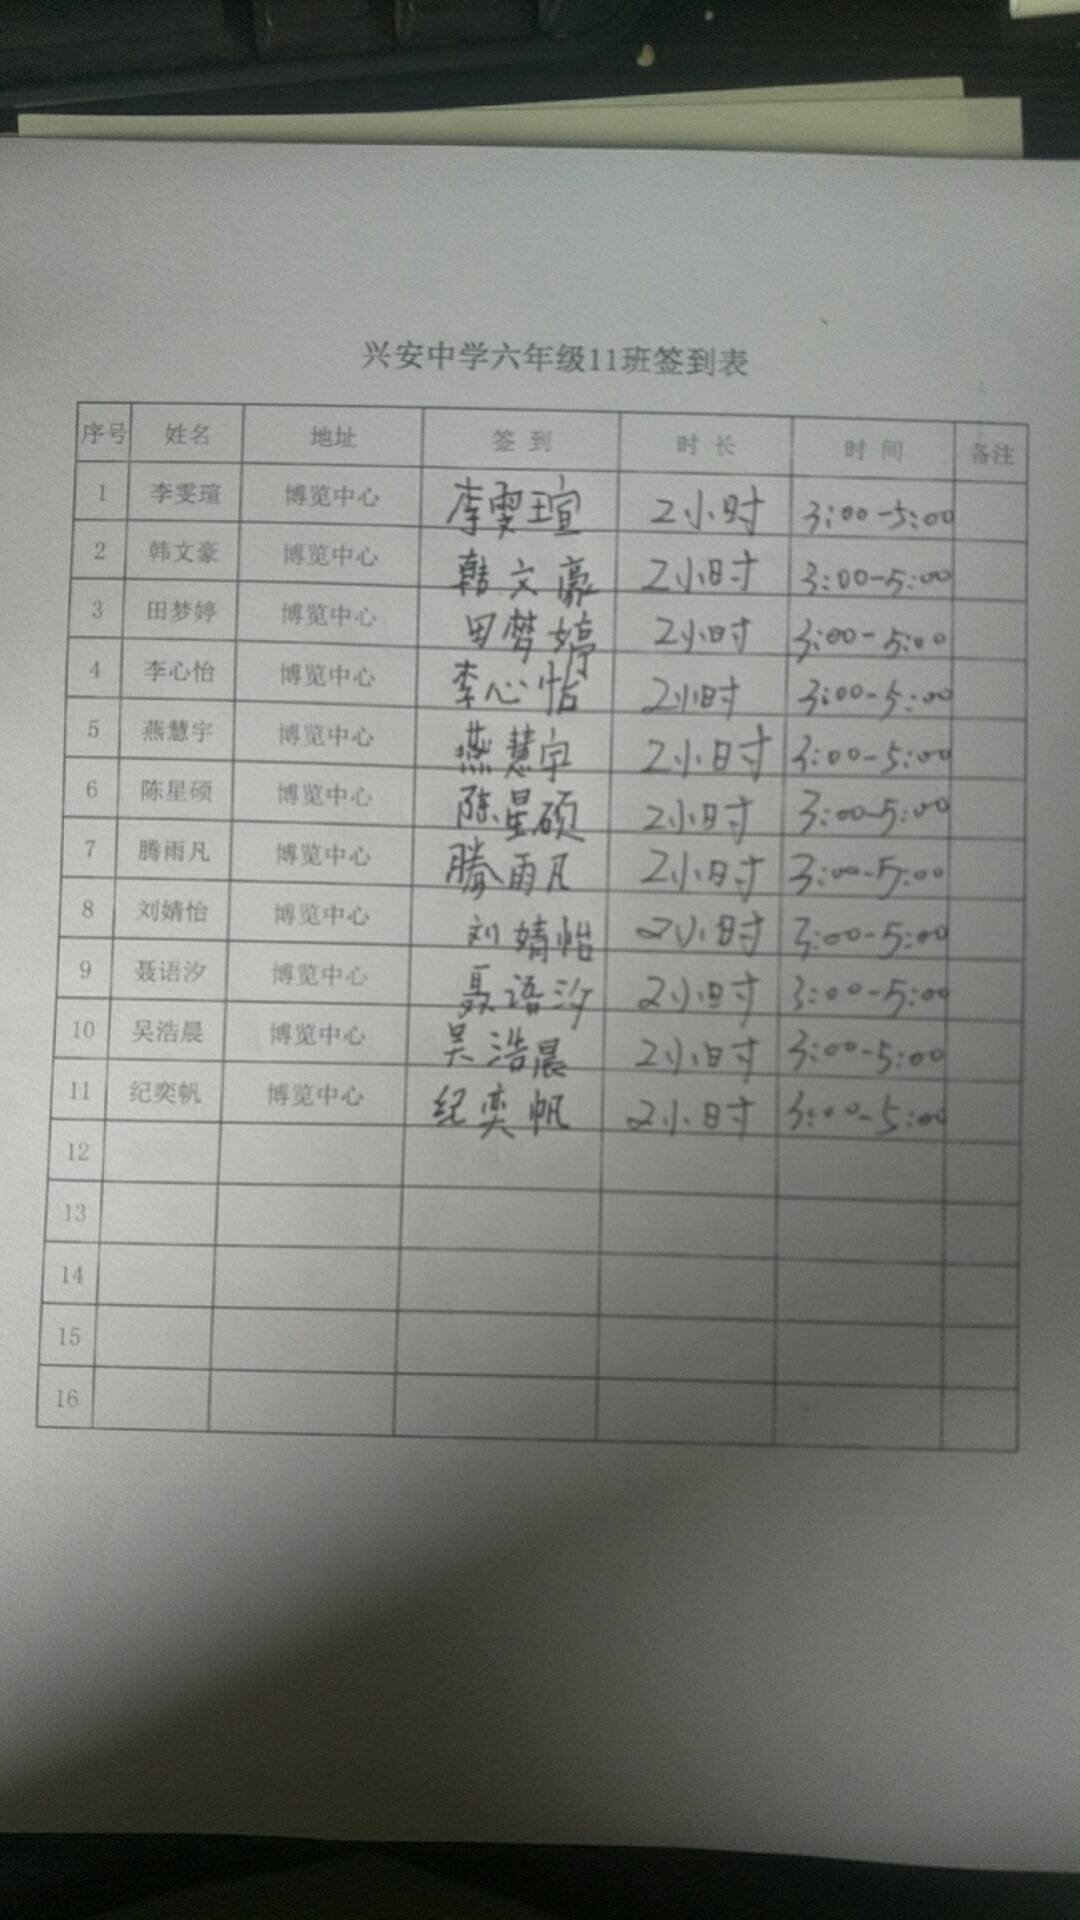 兴安中学六年级11班签到表
序号 姓名 地址 签到 时长 时间 备注
1 李雯瑄 博览中心 李雯瑄 2小时 3:00-5:00
2 韩文豪 博览中心 韩文豪 2小时 3:00-5:00
3 田梦婷 博览中心 田梦婷 2小时 3:00-5:00
4 李心怡 博览中心 李心怡 2小时 3:00-5:00
5 燕慧宇 博览中心 燕慧宇 2小时 3:00-5:00
6 陈星硕 博览中心 陈星硕 2小时 3:00-5:00
7 腾雨凡 博览中心 腾雨凡 2小时 3:00-5:00
8 刘婧怡 博览中心 刘婧怡 2小时 3:00-5:00
9 聂语汐 博览中心 聂语汐 2小时 3:00-5:00
10 吴浩晨 博览中心 吴浩晨 2小时 3:00-5:00
11 纪奕帆 博览中心 纪奕帆 2小时 3:00-5:00
12
13
14
15
16